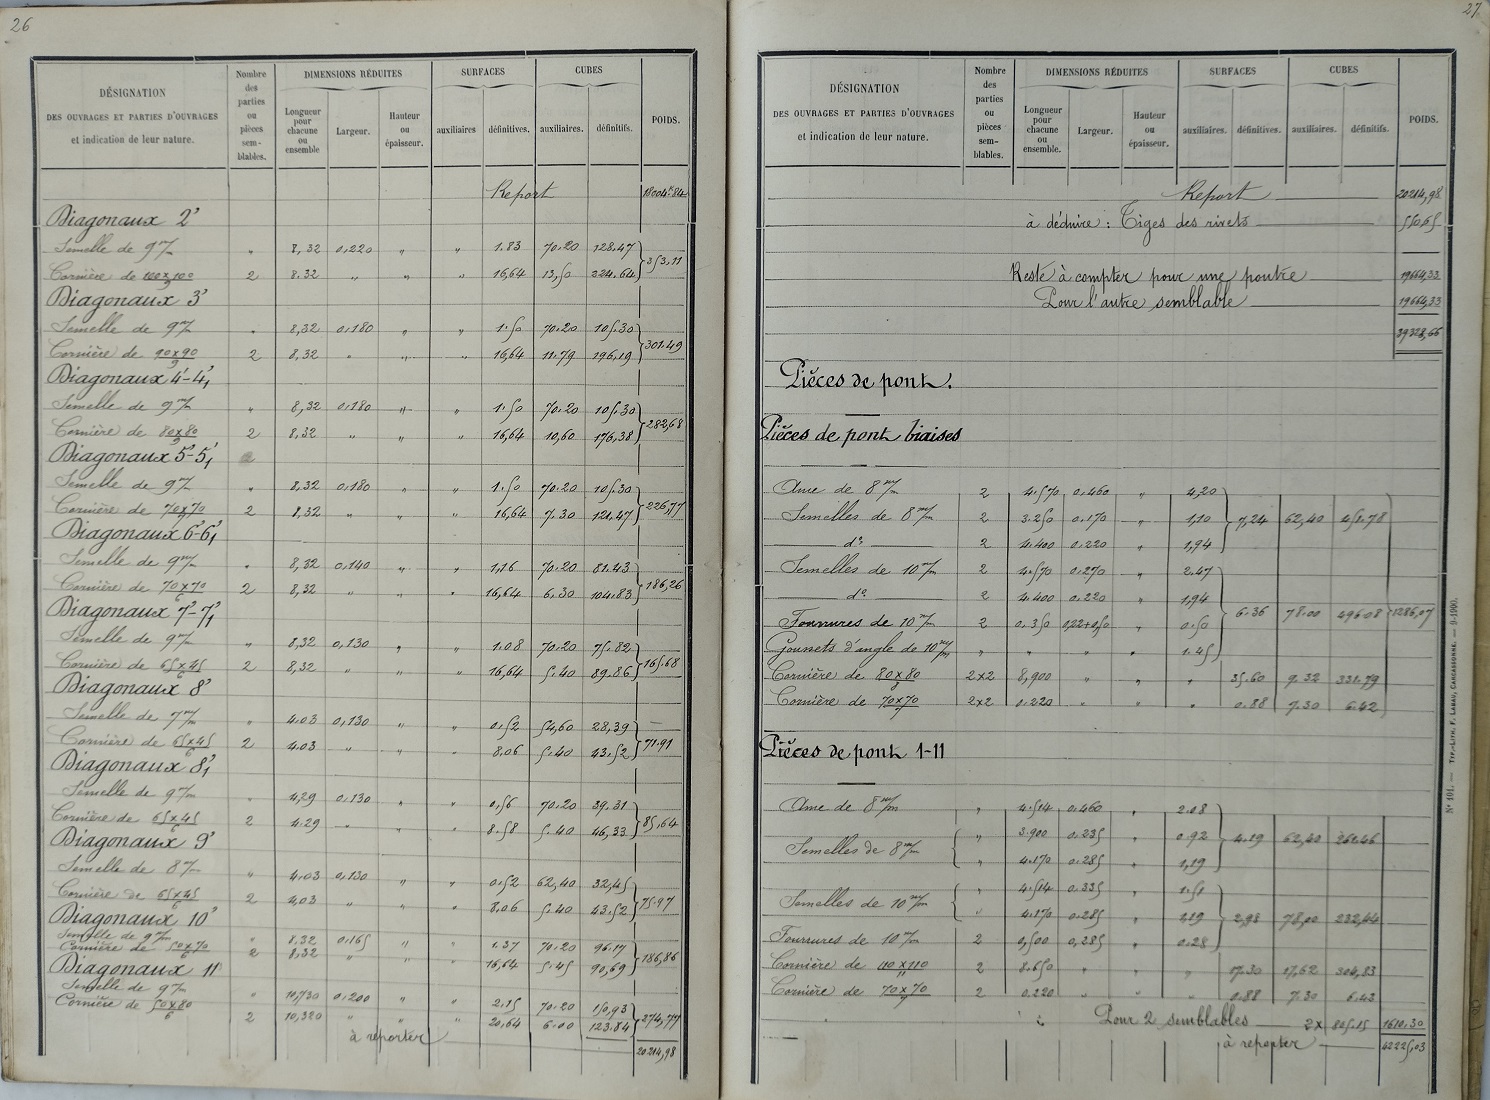 26
DÉSIGNATION DES OUVRAGES ET PARTIES D'OUVRAGES et indication de leur nature. | Nombre des parties ou pièces sem-blables. | DIMENSIONS RÉDUITES | SURFACES | CUBES | POIDS.
Longueur pour chacune ou ensemble | Largeur. | Hauteur ou épaisseur. | auxiliaires | définitives. | auxiliaires. | définitifs.
Report 18004k84
Diagonaux 2'
Semelle de 9m/m " 8,32 0,220 " " 1.83 70.20 128.47
353.11
Cornière de 100x100/9 2 8.32 " " " 16,64 13,50 224.64
Diagonaux 3'
Semelle de 9m/m " 8,32 0,180 " " 1.50 70.20 105.30
301.49
Cornière de 90x90/9 2 8,32 " " " 16,64 11.79 196.19
Diagonaux 4'-4'1
Semelle de 9m/m " 8,32 0,180 " " 1.50 70.20 105.30
282,68
Cornière de 80x80/9 2 8,32 " " " 16,64 10,60 176,38
Diagonaux 5'-5'1
Semelle de 9m/m " 8,32 0,180 " " 1.50 70.20 105.30
226,77
Cornière de 70x70/7 2 8,32 " " " 16,64 7.30 121.47
Diagonaux 6'-6'1
Semelle de 9m/m " 8,32 0,140 " " 1,16 70.20 81.43
186,26
Cornière de 70x70/6 2 8,32 " " " 16,64 6.30 104.83
Diagonaux 7'-7'1
Semelle de 9m/m " 8,32 0,130 " " 1.08 70.20 75.82
165.68
Cornière de 65x45/6 2 8,32 " " " 16,64 5.40 89.86
Diagonaux 8'
Semelle de 7m/m " 4.03 0,130 " " 0.52 54,60 28,39
71.91
Cornière de 65x45/6 2 4.03 " " " 8.06 5.40 43.52
Diagonaux 8'1
Semelle de 9m/m " 4,29 0,130 " " 0,56 70.20 39.31
85,64
Cornière de 65x45/6 2 4.29 " " " 8.58 5.40 46,33
Diagonaux 9'
Semelle de 8m/m " 4.03 0,130 " " 0.52 62,40 32,45
75.97
Cornière de 65x45/6 2 4,03 " " " 8.06 5.40 43.52
Diagonaux 10'
Semelle de 9m/m " 8,32 0.165 " " 1.37 70.20 96.17
186,86
Cornière de 50x70/6 2 8,32 " " " 16,64 5.45 90,69
Diagonaux 11'
Semelle de 9m/m " 10,730 0,200 " " 2.15 70.20 150,93
274,77
Cornière de 50x80/6 2 10,320 " " " 20,64 6.00 123.84
à reporter 20214,98
27
DÉSIGNATION DES OUVRAGES ET PARTIES D'OUVRAGES et indication de leur nature. | Nombre des parties ou pièces sem-blables. | DIMENSIONS RÉDUITES | SURFACES | CUBES | POIDS.
Longueur pour chacune ou ensemble. | Largeur. | Hauteur ou épaisseur. | auxiliaires. | définitives. | auxiliaires. | définitifs.
Report 20214,98
à déduire : Tiges des rivets 550,65
Reste à compter pour une poutre 19664,33
Pour l'autre semblable 19664,33
39328,66
Pièces de pont.
Pièces de pont biaises
Ame de 8m/m 2 4.570 0.460 " 4,20
Semelles de 8m/m 2 3.250 0.170 " 1,10 7,24 62,40 451.78
do 2 4.400 0.220 " 1,94
Semelles de 10m/m 2 4.570 0.270 " 2.47
do 2 4.400 0.220 " 1,94
6.36 78.00 496.08 1286,07
Fourrures de 10m/m 2 0,350 0,22+0,50 " 0.50
Goussets d'angle de 10m/m " " " " 1.45
Cornière de 80x80/8 2x2 8,900 " " " 35.60 9.32 331.79
Cornière de 70x70/7 2x2 0.220 " " " 0.88 7.30 6.42
Pièces de pont 1-11
Ame de 8m/m " 4.514 0.460 " 2.08
Semelles de 8m/m " 3.900 0.235 " 0.92 4.19 62,40 261.46
" 4.170 0.285 " 1,19
Semelles de 10m/m " 4.514 0.335 " 1.51
" 4.170 0.285 " 1.19 2,98 78,00 232,44
Fourrures de 10m/m 2 0,500 0,285 " 0.28
Cornière de 110x110/11 2 8.650 " " " 17.30 17,62 304,83
Cornière de 70x70/7 2 0.220 " " " 0.88 7.30 6.43
Pour 2 semblables 2x 805.15 1610.30
à reporter 42225,03
No 101. — Typ.-Lith. F. Labau, Carcassonne. — 9-1900.